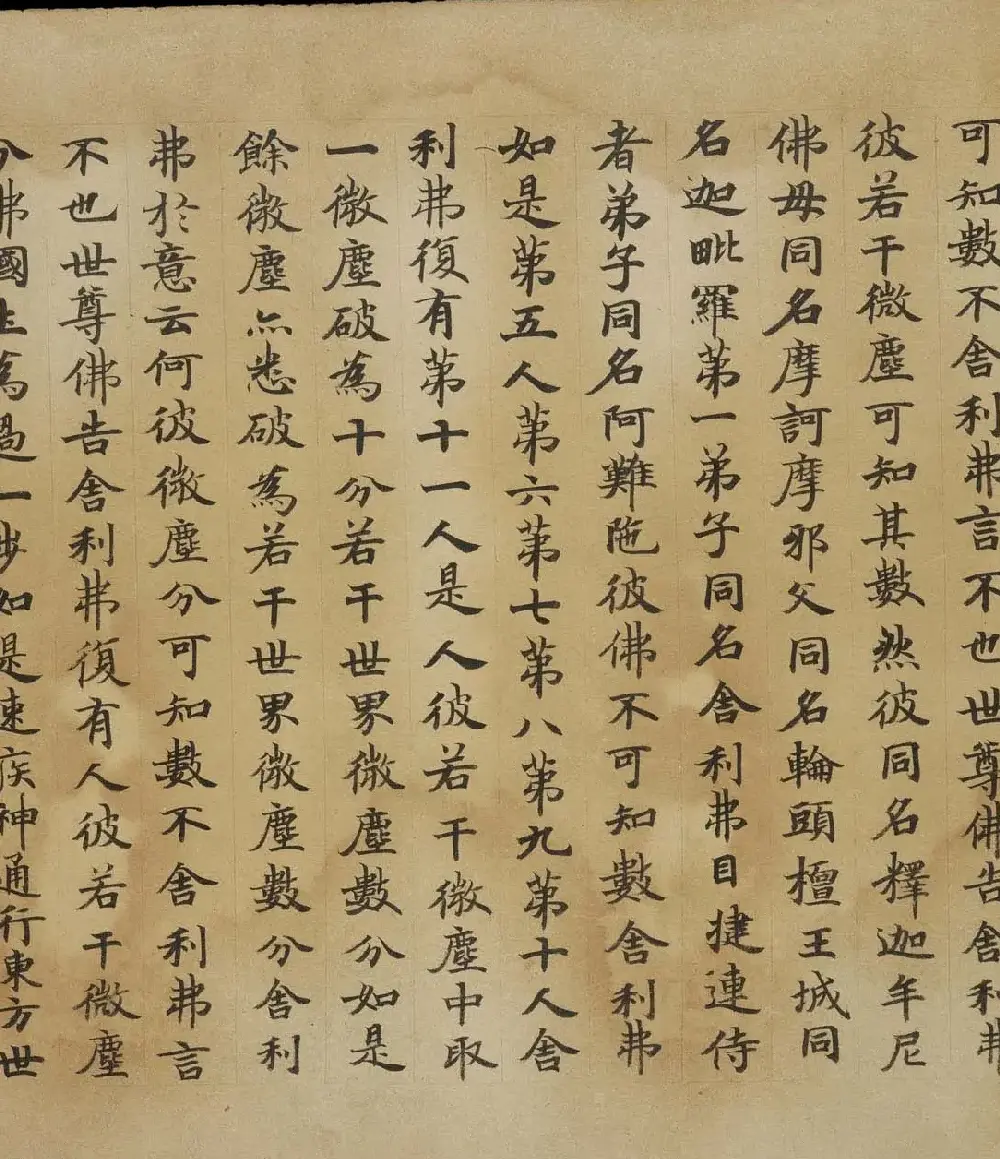 可知數不舍利弗言不也世尊佛告舍利弗
彼若干微塵可知其數然彼同名釋迦牟尼
佛母同名摩訶摩邪父同名輸頭檀王城同
名迦毗羅第一弟子同名舍利弗目揵連侍
者弟子同名阿難陁彼佛不可知數舍利弗
如是第五人第六第七第八第九第十人舍
利弗復有第十一人是人彼若干微塵中取
一微塵破為十分若干世界微塵數分如是
餘微塵亦悉破為若干世界微塵數分舍利
弗於意云何彼微塵分可知數不舍利弗言
不也世尊佛告舍利弗復有人彼若干微塵
分佛國土為過一步如是速疾神通行東方世